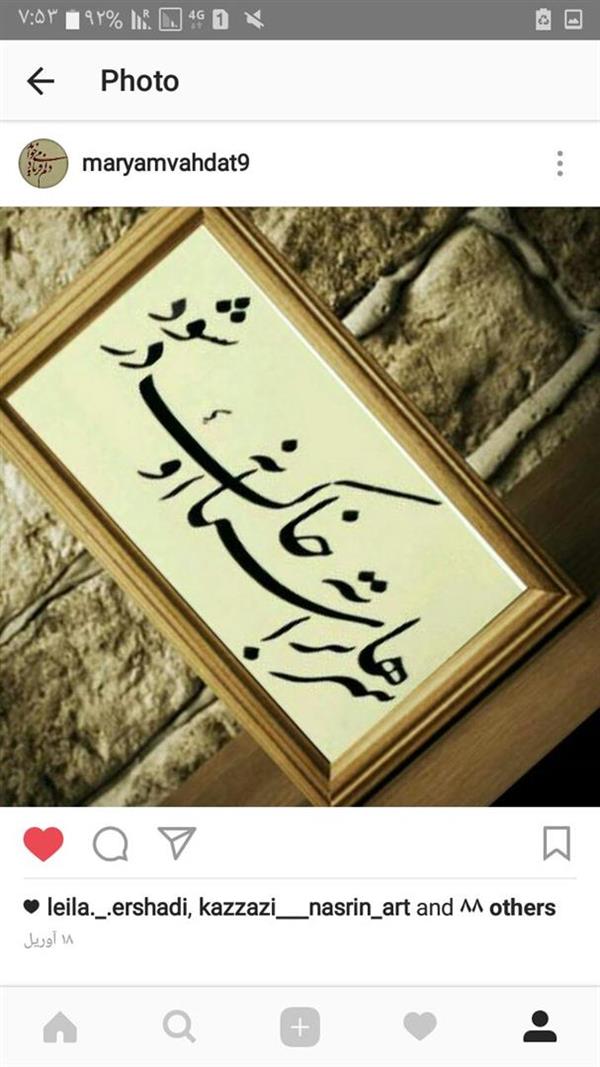 ۷:۵۳ ۹۲% R 4G 1
Photo
maryamvahdat9
سرها بر آستانهٔ او خاک در شود
leila._.ershadi, kazzazi___nasrin_art and ۸۸ others
۱۸ آوریل